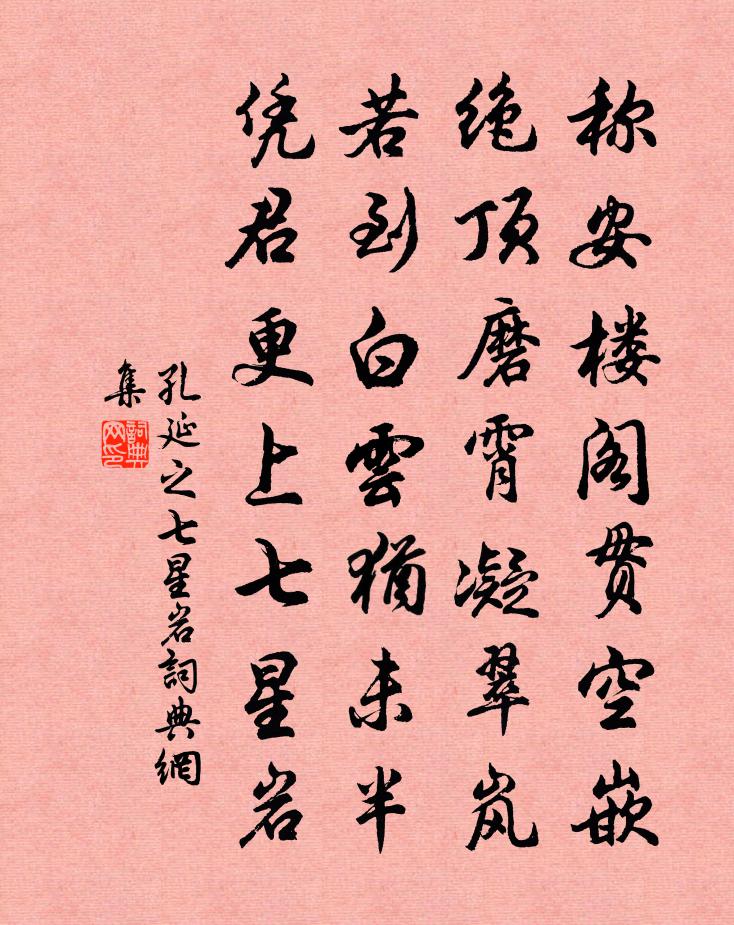 称安楼阁贯空嵌
绝顶磨霄凝翠岚
若到白雲猶未半
凭君更上七星岩
孔延之七星岩詞典網
集
詞典
网印